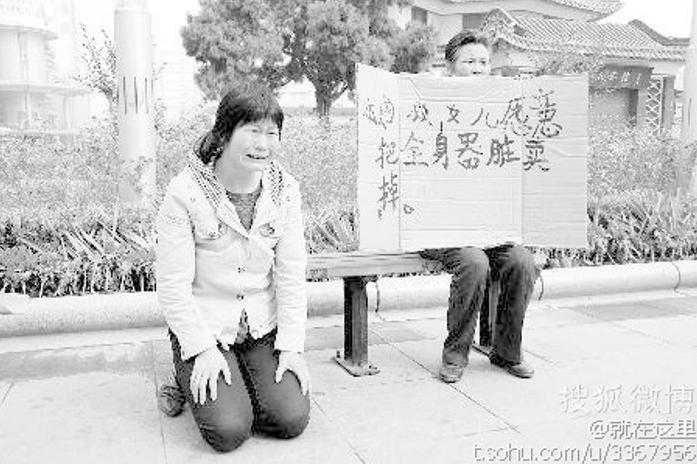 救女儿愿意
把全身器脏卖
掉。
搜狐微博
@就在这里
t.sohu.com/u/3367956